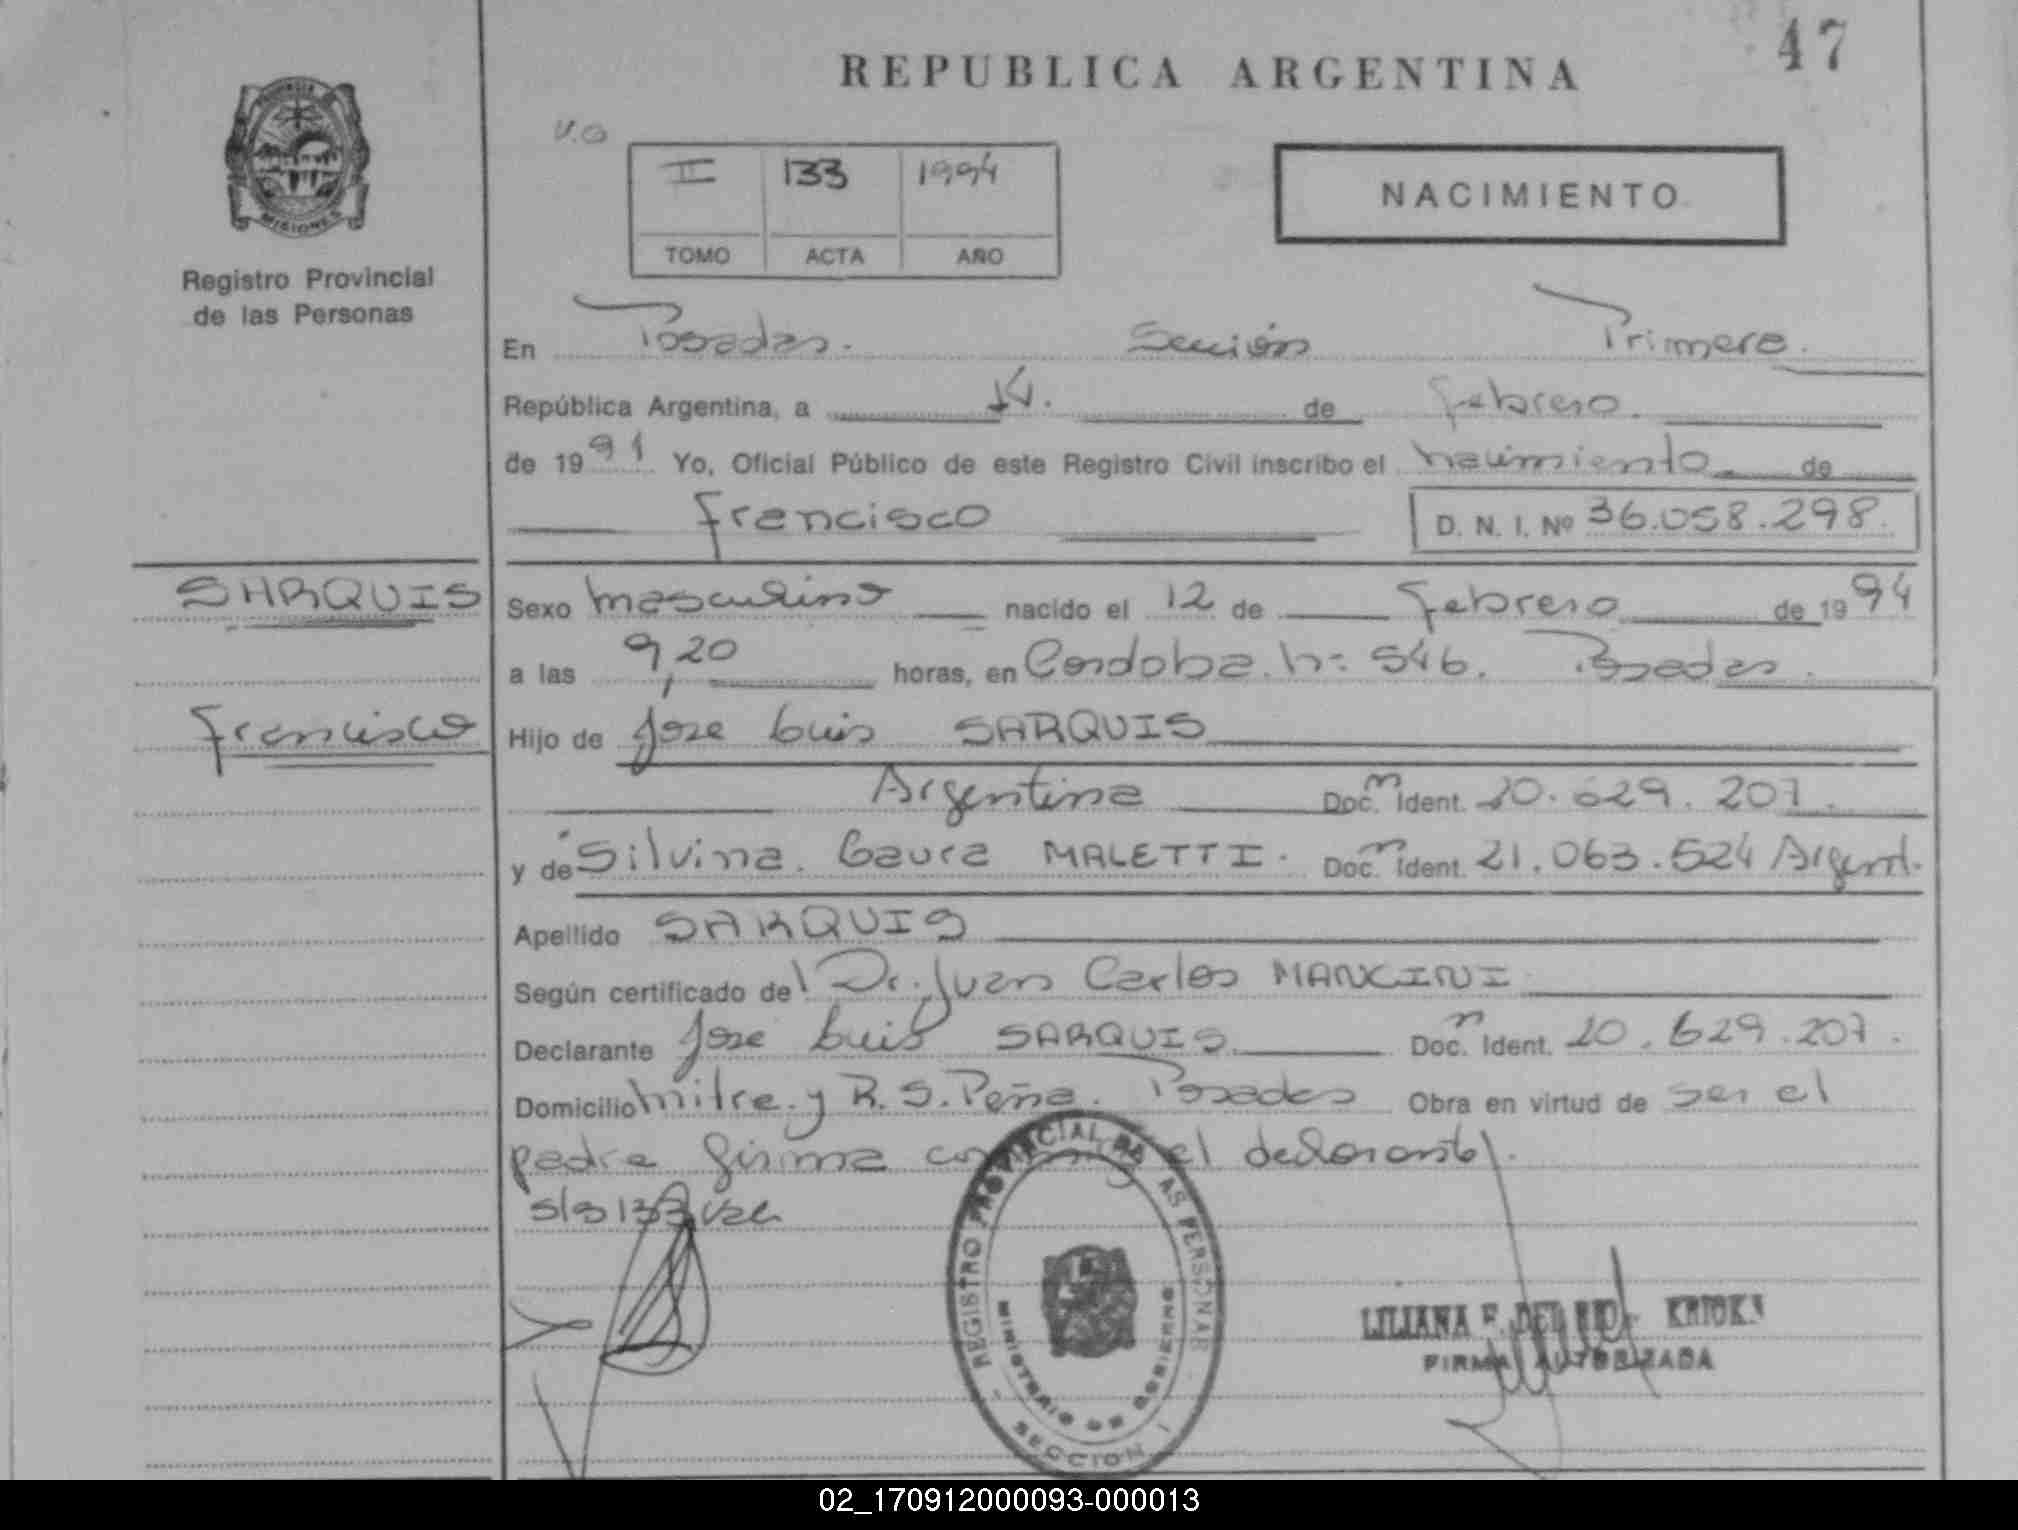 47
REPUBLICA ARGENTINA
V.O
II 133 1994
TOMO ACTA AÑO
NACIMIENTO
MISIONES
Registro Provincial
de las Personas
En Posadas. Sección Primera.
República Argentina, a 14. de febrero.
de 1991 Yo, Oficial Público de este Registro Civil inscribo el nacimiento de
Francisco D. N. I. Nº 36.058.298.
SARQUIS
Francisco
Sexo masculino nacido el 12 de febrero de 1994
a las 9,20 horas, en Cordoba. nº 546. Posadas.
Hijo de Jose Luis SARQUIS
Argentina Doc. Ident. 20.629.207.
y de Silvina. Laura MALETTI. Doc. Ident. 21.063.524 Argent.
Apellido SARQUIS
Según certificado del Dr. Juan Carlos MANCINI
Declarante Jose Luis SARQUIS Doc. Ident. 20.629.207.
Domicilio Mitre. y R. S. Peña. Posadas Obra en virtud de ser el
padre firma el declarante.
s/a 133 vale
REGISTRO PROVINCIAL DE LAS PERSONAS
MINISTERIO DE GOBIERNO
SECCION I
LILIANA DEL
FIRMA AUTORIZADA
02_170912000093-000013